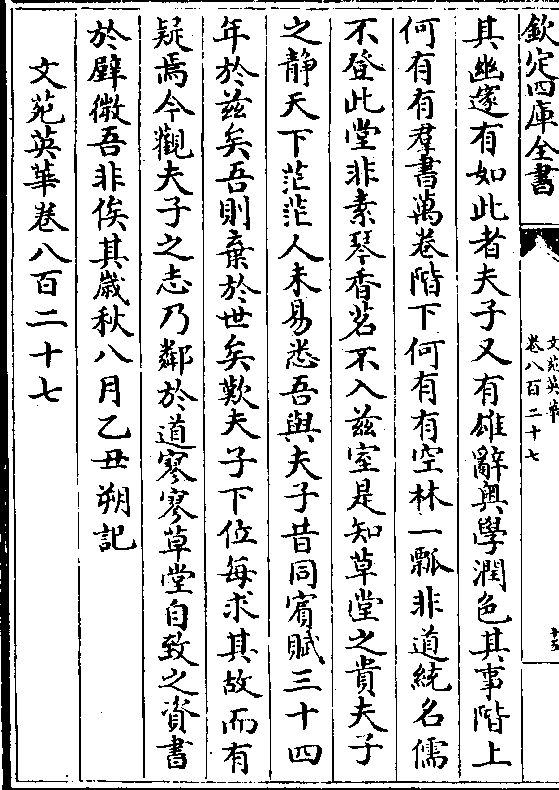 欽定四庫全書
文苑英華
卷八百二十七
其幽邃有如此者夫子又有雄辭奧學潤色其事階上
何有有羣書萬卷階下何有有空林一瓢非道統名儒
不登此堂非素琴香茗不入兹室是知草堂之貴夫子
之靜天下茫茫人未易悉吾與夫子昔同賓賦三十四
年於兹矣吾則棄於世矣歎夫子下位每求其故而有
疑焉今觀夫子之志乃鄰於道寥寥草堂自致之資書
於壁微吾非俟其歲秋八月乙丑朔記
文苑英華卷八百二十七